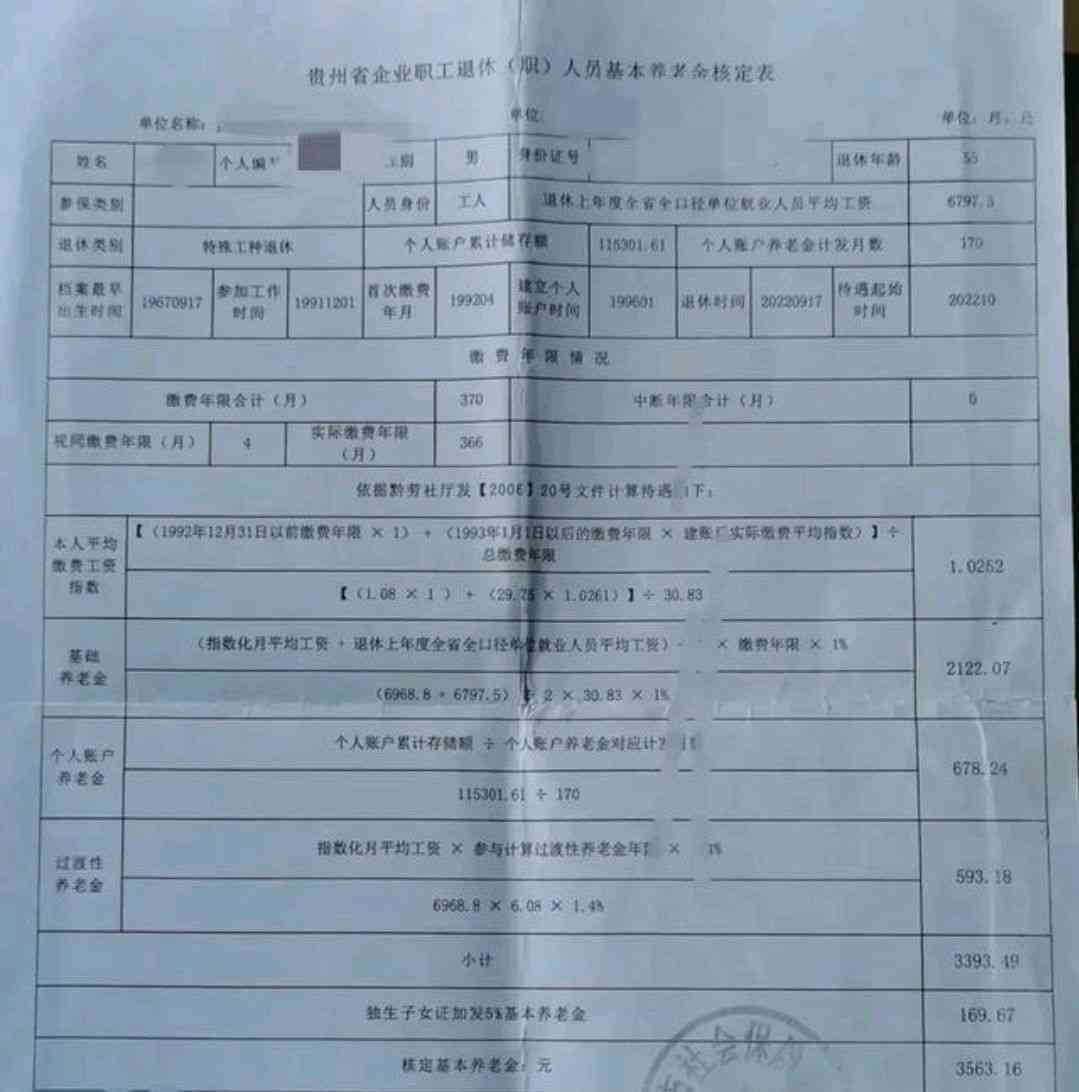 贵州省企业职工退休（职）人员基本养老金核定表
单位名称：
单位
单位：月、元
姓名 个人编号 别 男 身份证号 退休年龄 55
参保类别 人员身份 工人 退休上年度全省全口径单位就业人员平均工资 6797.5
退休类别 特殊工种退休 个人账户累计储存额 115301.61 个人账户养老金计发月数 170
档案最早出生时间 19670917 参加工作时间 19911201 首次缴费年月 199204 建立个人账户时间 199601 退休时间 20220917 待遇起始时间 202210
缴费年限情况
缴费年限合计（月） 370 中断年限合计（月） 0
视同缴费年限（月） 4 实际缴费年限（月） 366
依据黔劳社厅发【2006】20号文件计算待遇 下：
本人平均缴费工资指数
【（1992年12月31日以前缴费年限 × 1） + （1993年1月1日以后的缴费年限 × 建账 实际缴费平均指数）】÷
总缴费年限
【（1.08 × 1 ） + （29.75 × 1.0261）】÷ 30.83
1.0252
基础养老金
（指数化月平均工资 + 退休上年度全省全口径单位就业人员平均工资） × 缴费年限 × 1%
（6968.8 + 6797.5） ÷ 2 × 30.83 × 1%
2122.07
个人账户养老金
个人账户累计存储额 ÷ 个人账户养老金对应计
115301.61 ÷ 170
678.24
过渡性养老金
指数化月平均工资 × 参与计算过渡性养老金年 ×
6968.8 × 6.08 × 1.4%
593.18
小计 3393.49
独生子女证加发5%基本养老金 169.67
核定基本养老金：元 3563.16
社会保